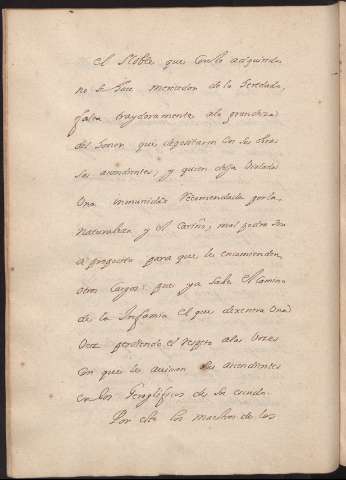 el Noble que con lo adquirido
no se hace merecedor de lo heredado,
falta traydoramente a la grandeza
del honor que depositaron en sus obras
sus ascendientes, y quien deja violada
una inmunidad recomendada por la
naturaleza y el cariño, mal podra ser
a proposito para que le encomienden
otros cargos: que ya sabe el camino
de la Infamia el que desentra una
vez perdiendo el respeto a las voces
con que le avisan sus ascendientes
en los Geroglificos de su escudo.
Por esto los maestros de los